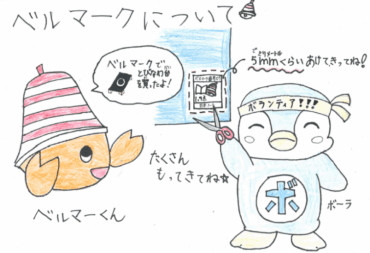 ベルマークについて
ベルマークで
とびなわ台
を買ったよ!
5mmくらいあけてきってね!
ボランティア!!!
たくさん
もってきてね☆
ボ
ベルマーくん
ボーラ